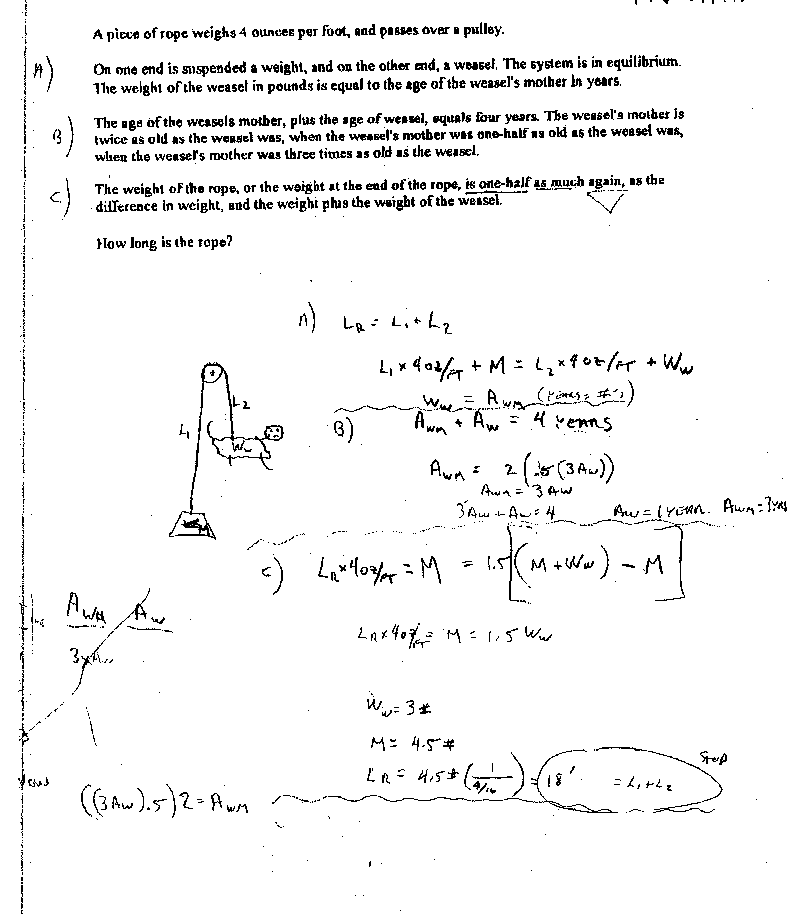 A piece of rope weighs 4 ounces per foot, and passes over a pulley.
A) On one end is suspended a weight, and on the other end, a weasel. The system is in equilibrium.
The weight of the weasel in pounds is equal to the age of the weasel's mother in years.
B) The age of the weasels mother, plus the age of weasel, equals four years. The weasel's mother is
twice as old as the weasel was, when the weasel's mother was one-half as old as the weasel was,
when the weasel's mother was three times as old as the weasel.
C) The weight of the rope, or the weight at the end of the rope, is one-half as much again, as the
difference in weight, and the weight plus the weight of the weasel.
How long is the rope?
A) LR = L1 + L2
L1 × 4oz/FT + M = L2 × 4oz/FT + WW
WW = AWM (Years = #'s)
B) AWM + AW = 4 years
L2
L1
WW
M
AWM = 2(.5(3AW))
AWM = 3AW
3AW + AW = 4 AW = 1 YEAR. AWM = 3YRS
C) LR×4oz/FT = M = 1.5[(M + WW) - M]
AWM AW
LR×4oz/FT = M = 1.5 WW
WW = 3#
M = 4.5#
LR = 4.5#(1/4/16) = 18' = L1+L2
Stop
((3AW).5)2 = AWM